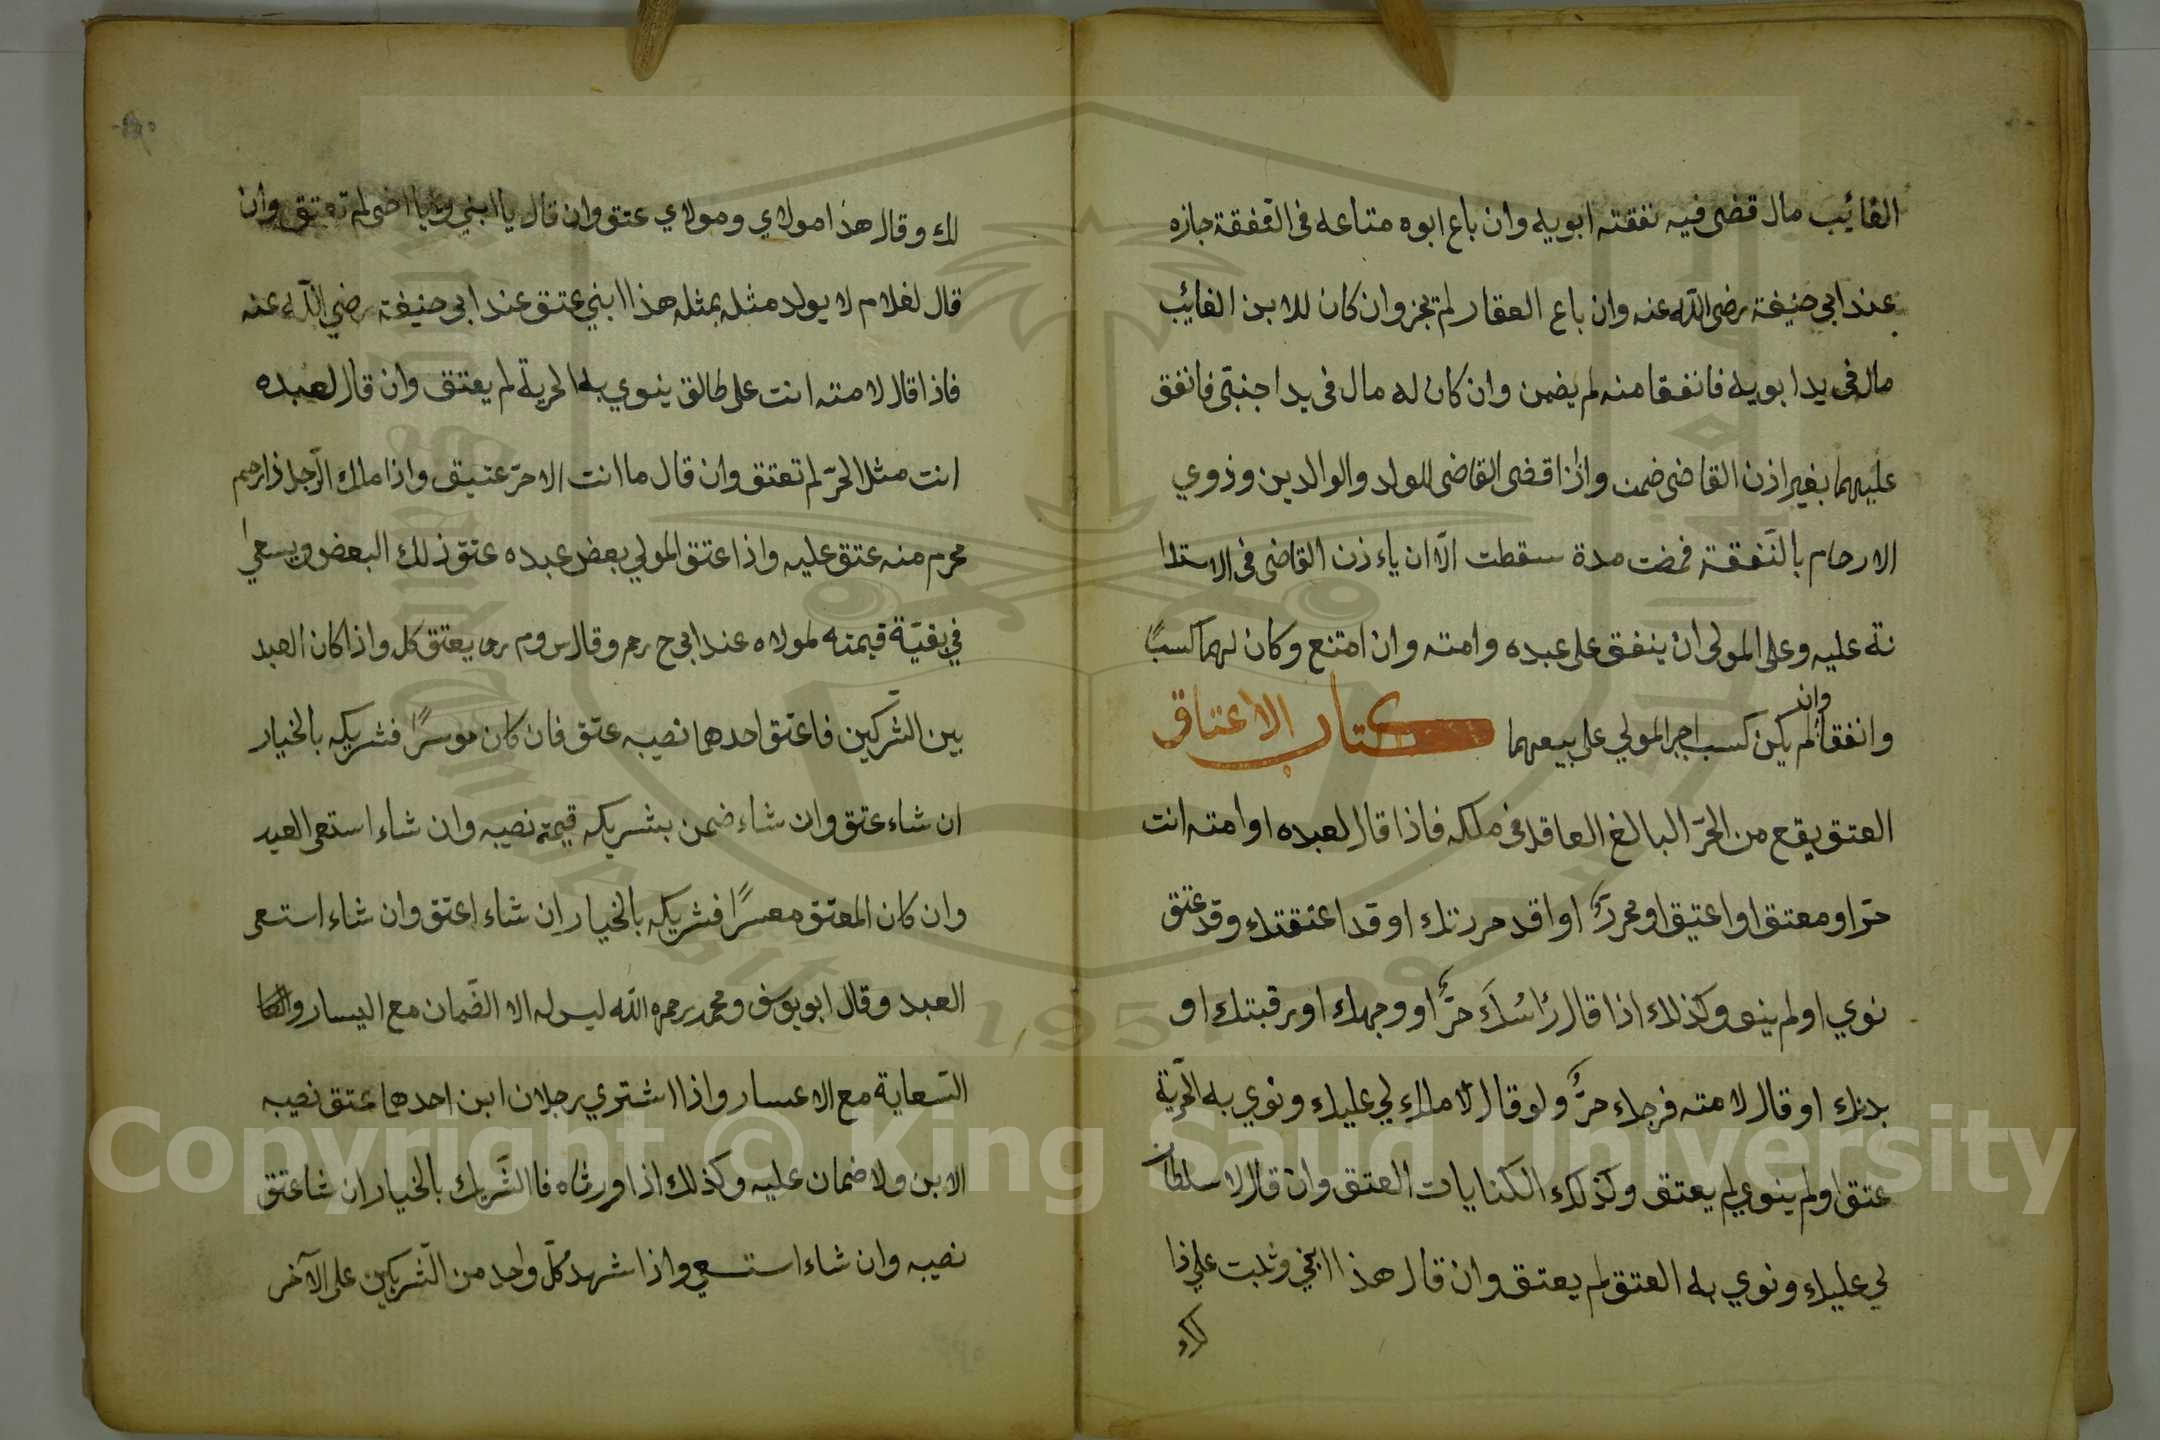 الغائب مال قضى فيه نفقته ابويه وان باع ابوه متاعه فى النفقة جازه
عند ابي حنيفة رضى الله عنه وان باع العقار لم تجز وان كان للابن الغائب
مال فى يد ابويه فانفقا منه لم يضمن وان كان له مال فى يد اجنبى فانفق
عليهما بغير اذن القاضى ضمن واذا قضى القاضى للولد والوالدين وذوي
الارحام بالنفقة فمضت مدة سقطت الا ان ياءذن القاضى فى الاستدا
نة عليه وعلى المولى ان ينفق على عبده وامته وان امتنع وكان لهما كسبًا
وانفقا وان لم يكن كسب اجبر المولي على بيعهما كتاب الاعتاق
العتق يقع من الحرّ البالغ العاقل فى ملكه فاذا قال لعبده او امته انت
حرّ او معتق او اعتيق او محررٌ او اقد حررتك او قد اعتقتك وقد عتق
نوي او لم ينو وكذلك اذا قال رُاسُكَ حرٌّ او وجهك او رقبتك او
بدنك او قال لامته فرجك حرٌّ ولو قال لا ملك لي عليك ونوي به الحرّية
عتق او لم ينوي لم يعتق وكذلك الكنايات العتق وان قال لا سلطان
لي عليك ونوي به العتق لم يعتق وان قال هذا ابني وثبت علي ذا
لك
لك وقال هذا مولاي ومولاي عتق وان قال يا ابني ويا اخى لم تعتق وان
قال لغلام لا يولد مثله بمثله هذا ابني عتق عند ابى حنيفة رضي الله عنه
فاذا قال لامته انت على طالق ينوي به الحرية لم يعتق وان قال لعبده
انت مثل الحرّ لم تعتق وان قال ما انت الا حرّ عتيق واذا ملك الرّجل ذا رحم
محرم منه عتق عليه واذا عتق المولي بعض عبده عتق ذلك البعض ويسعي
في بقيّة قيمته لمولاه عند ابى ح رح وقال س وم رح يعتق كل واذا كان العبد
بين الشّركين فاعتق احدهما نصيبه عتق فان كان موسرًا فشريكه بالخيار
ان شاء عتق وان شاء ضمن بشريكه قيمة نصيبه وان شاء استعى العبد
وان كان المعتق معسرًا فشريكه بالخيار ان شاء اعتق وان شاء استعى
العبد وقال ابو يوسف ومحمد رحمه الله ليس له الا الضّمان مع اليسار و
السّعاية مع الاعسار واذا اشتري رجلان ابن احدهما عتق نصيبه
الابن ولا ضمان عليه وكذلك اذا ورثاه فا الشّريك بالخيار ان شا عتق
نصيبه وان شاء استسعي واذا شهد كلّ واحد من الشّريكين على الآخر
Copyright © King Saud University
1957